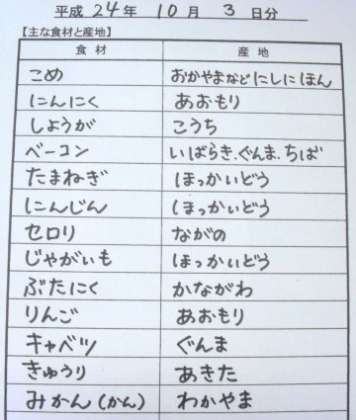 平成 24 年 10 月 3 日分
【主な食材と産地】
食材 産地
こめ おかやまなどにしにほん
にんにく あおもり
しょうが こうち
ベーコン いばらき.ぐんま.ちば
たまねぎ ほっかいどう
にんじん ほっかいどう
セロリ ながの
じゃがいも ほっかいどう
ぶたにく かながわ
りんご あおもり
キャベツ ぐんま
きゅうり あきた
みかん(かん) わかやま